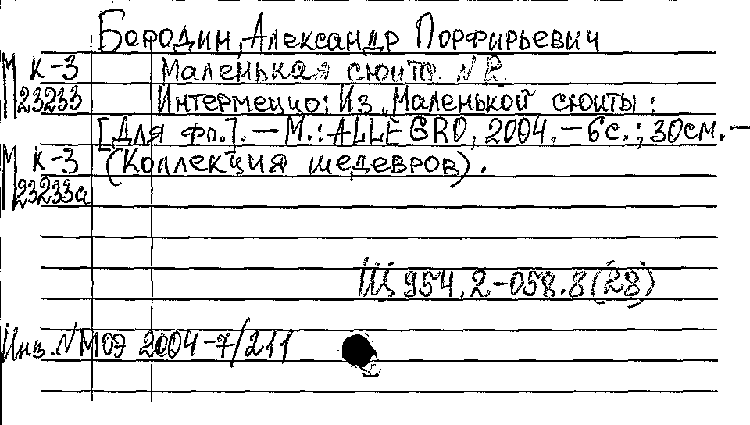 Бородин, Александр Порфирьевич
М к-3 Маленькая сюита. N 2.
23233 Интермеццо: Из Маленькой сюиты :
[Для фп.]. — М. : ALLEGRO, 2004. — 6с. ; 30см. —
М к-3 (Коллекция шедевров).
23233а
Щ 954.2-058.8(28)
Инв. N МОЭ 2004-7/211